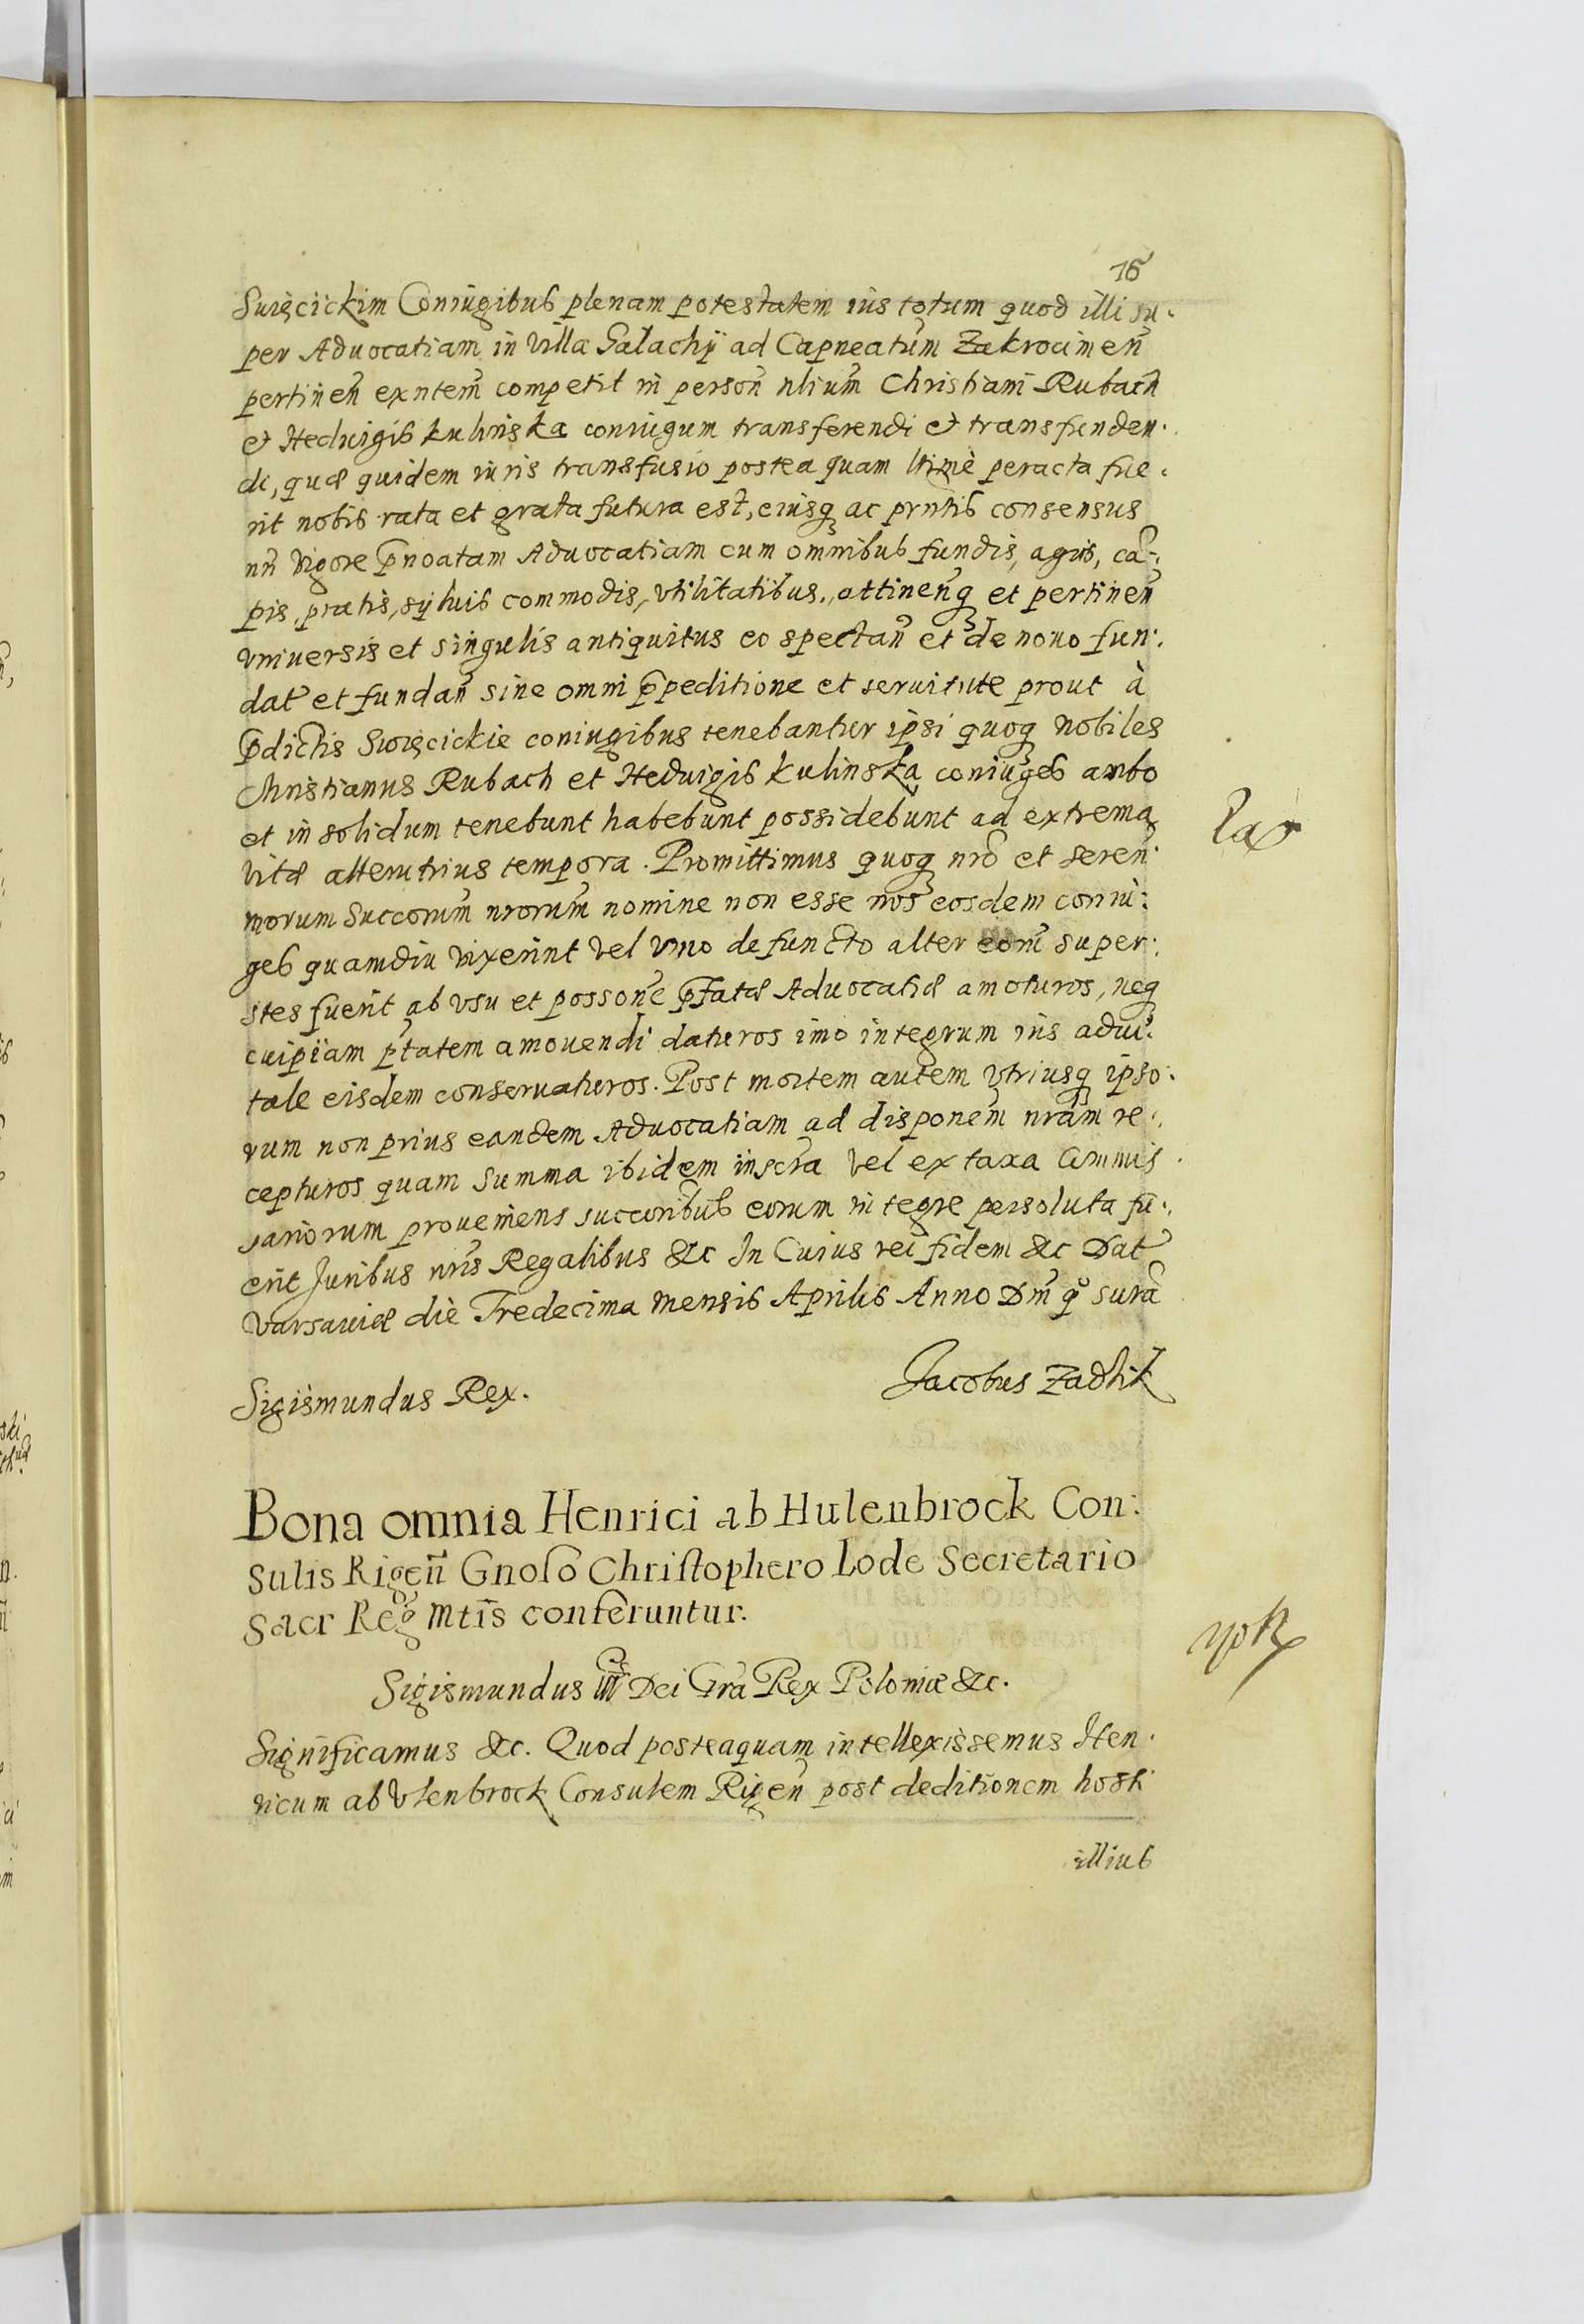 16
Swięcickim Coniugibus plenam potestatem ius totum quod illi su-
per Aduocatiam in Villa Galachÿ ad Capneatum Zakrocimeñ
pertineñ exñtem competit in persoñ ñlium Christiani Rubach
et Heduigis Kulinska coniugum transferendi et transfunden-
di, quæ quidem iuris transfusio postea quam ltimè peracta fue-
rit nobis rata et grata futura est, eiusq ac pñtis consensus
nñ vigore p̃noatam Aduocatiam cum omnibus fundis, agris, cã-
pis, pratis, syluis commodis, vtilitatibus, attineñq et pertineñ
vniuersis et singulis antiquitus eo spectañ et de nouo fun-
dat et fundañ sine omni p̃peditione et seruitute prout à
p̃dictis Swięcickie coniugibus tenebantur ipsi quoq nobiles
Christianus Rubach et Heduigis Kulinska coniuges ambo
et in solidum tenebunt habebunt possidebunt ad extrema
vitæ alterutrius tempora. Promittimus quoq nrõ et sereñ
morum Succorum̃ nrorum̃ nomine non esse nos eosdem coniu-
ges quamdiu vixerint vel vno defuncto alter eorm̃ super-
stes fuerit ab vsu et possone p̃fatæ Aduocatiæ amoturos, neq
cuipiam ptatem amouendi daturos imo integrum ius adui-
tale eisdem conseruaturos. Post mortem autem vtriusq ipso-
rum non prius eandem Aduocatiam ad disponem̃ nrãm re-
cepturos quam summa ibidem inscra vel ex taxa Cõmmis
sariorum proueniens succoribus eorum integre persoluta fu-
erit Juribus nrĩs Regalibus &c In Cuius rei fidem &c Dat
Varsauiæ die Tredecima mensis Aprilis Anno Dñi qº surã
Jacobus Zadzik
Sigismundus Rex.
Bona omnia Henrici ab Hulenbrock Con-
sulis Rigeñ Gnoso Christophero Lode Secretario
Sacr Reg Mtis conferuntur.
Sigismundus III Dei Gra Rex Poloniæ &c.
Significamus &c. Quod posteaquam intellexissemus Hen-
ricum ab Vlenbrock Consulem Rigeñ post deditionem hosti
illius